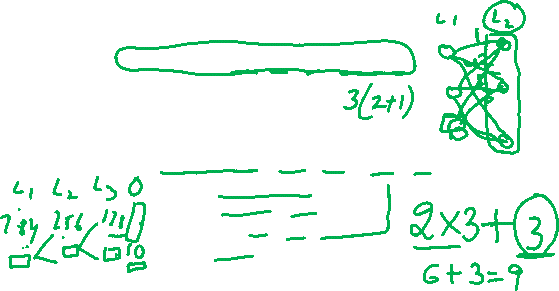 L1 L2
3(2+1)
L1 L2 L3 0
784 256 128
10
2×3+3
6+3=9